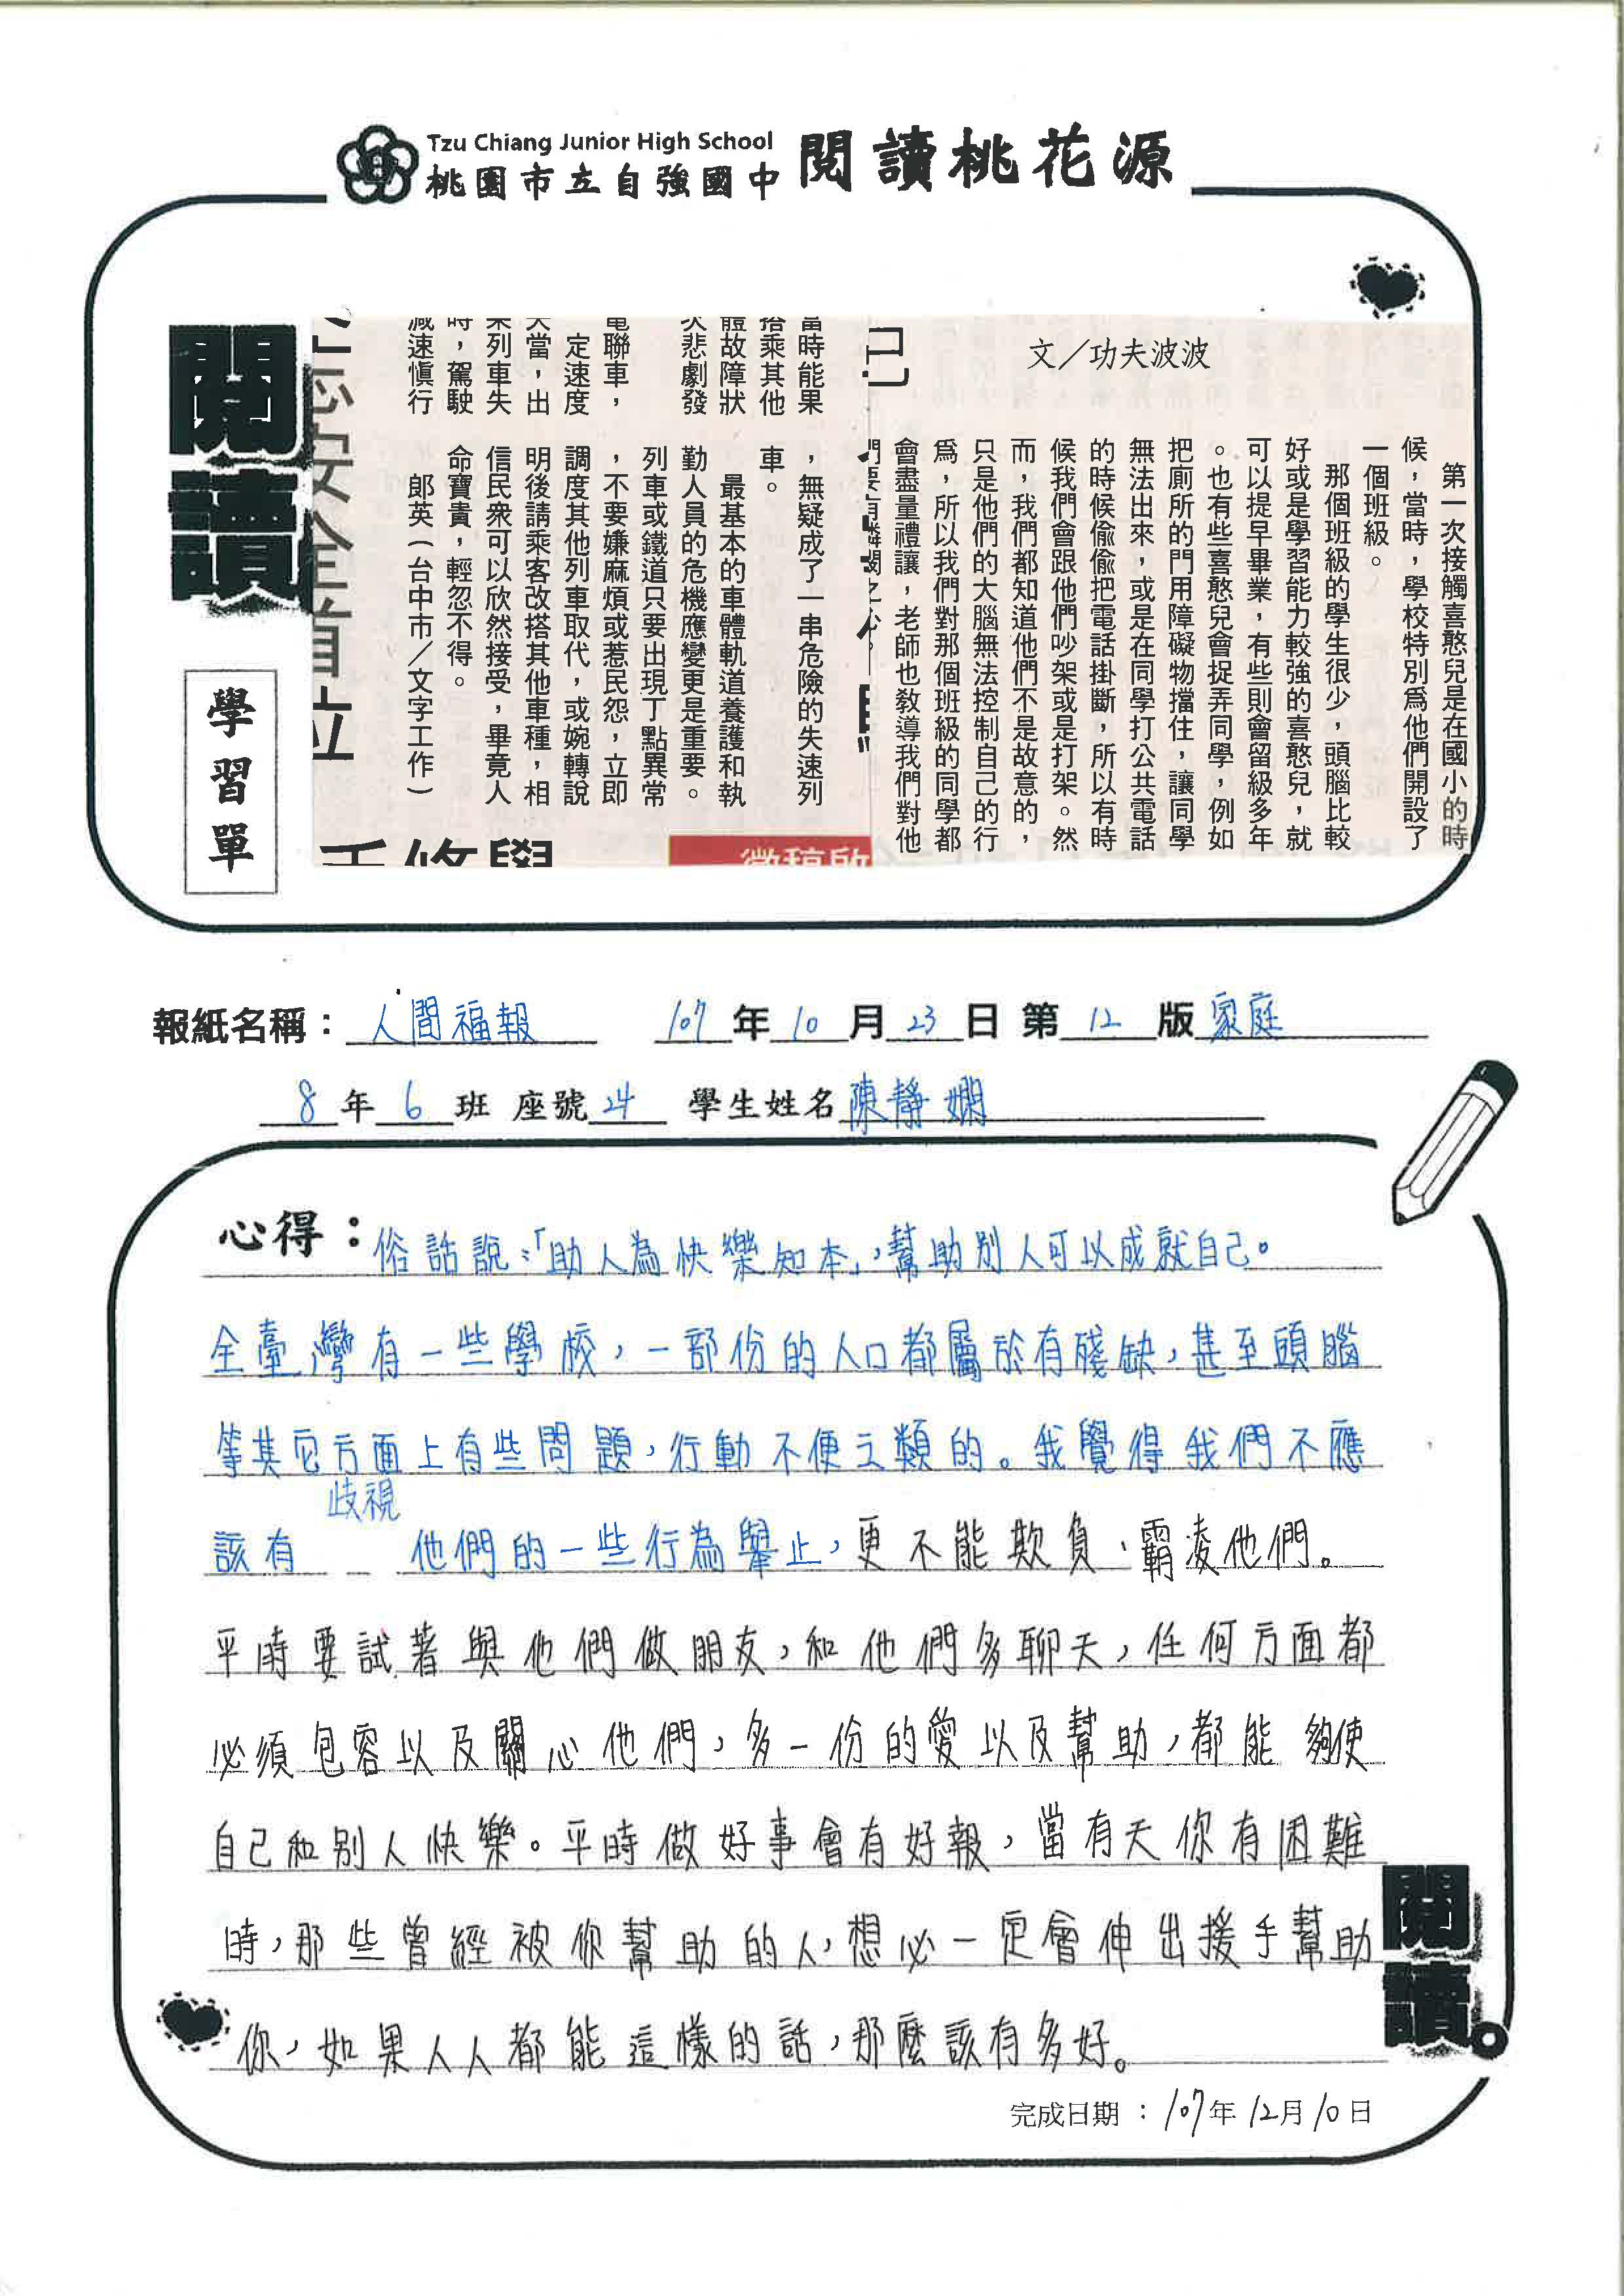 Tzu Chiang Junior High School
桃園市立自強國中
閱讀桃花源
閱讀
學習單
文／功夫波波
己
第一次接觸喜憨兒是在國小的時
候，當時，學校特別為他們開設了
一個班級。
那個班級的學生很少，頭腦比較
好或是學習能力較強的喜憨兒，就
可以提早畢業，有些則會留級多年
。也有些喜憨兒會捉弄同學，例如
把廁所的門用障礙物擋住，讓同學
無法出來，或是在同學打公共電話
的時候偷偷把電話掛斷，所以有時
候我們會跟他們吵架或是打架。然
而，我們都知道他們不是故意的，
只是他們的大腦無法控制自己的行
為，所以我們對那個班級的同學都
會盡量禮讓，老師也教導我們對他
們要有憐憫之心。
當時能果
搭乘其他
體故障狀
次悲劇發
電聯車，
定速度
失當，出
果列車失
時，駕駛
減速慎行
，無疑成了一串危險的失速列
車。
最基本的車體軌道養護和執
勤人員的危機應變更是重要。
列車或鐵道只要出現丁點異常
，不要嫌麻煩或惹民怨，立即
調度其他列車取代，或婉轉說
明後請乘客改搭其他車種，相
信民眾可以欣然接受，畢竟人
命寶貴，輕忽不得。
郎英（台中市／文字工作）
安全首位
徵稿啟
報紙名稱：人間福報 107年10月23日 第12版家庭
8年6班 座號24 學生姓名陳靜嫻
心得：俗話說：「助人為快樂知本」，幫助別人可以成就自己。
全臺灣有一些學校，一部份的人口都屬於有殘缺，甚至頭腦
等其它方面上有些問題，行動不便之類的。我覺得我們不應
該有歧視他們的一些行為舉止，更不能欺負、霸凌他們。
平時要試著與他們做朋友，和他們多聊天，任何方面都
必須包容以及關心他們，多一份的愛以及幫助，都能夠使
自己和別人快樂。平時做好事會有好報，當有天你有困難
時，那些曾經被你幫助的人，想必一定會伸出援手幫助
你，如果人人都能這樣的話，那麼該有多好。
閱讀。
完成日期：107年12月10日